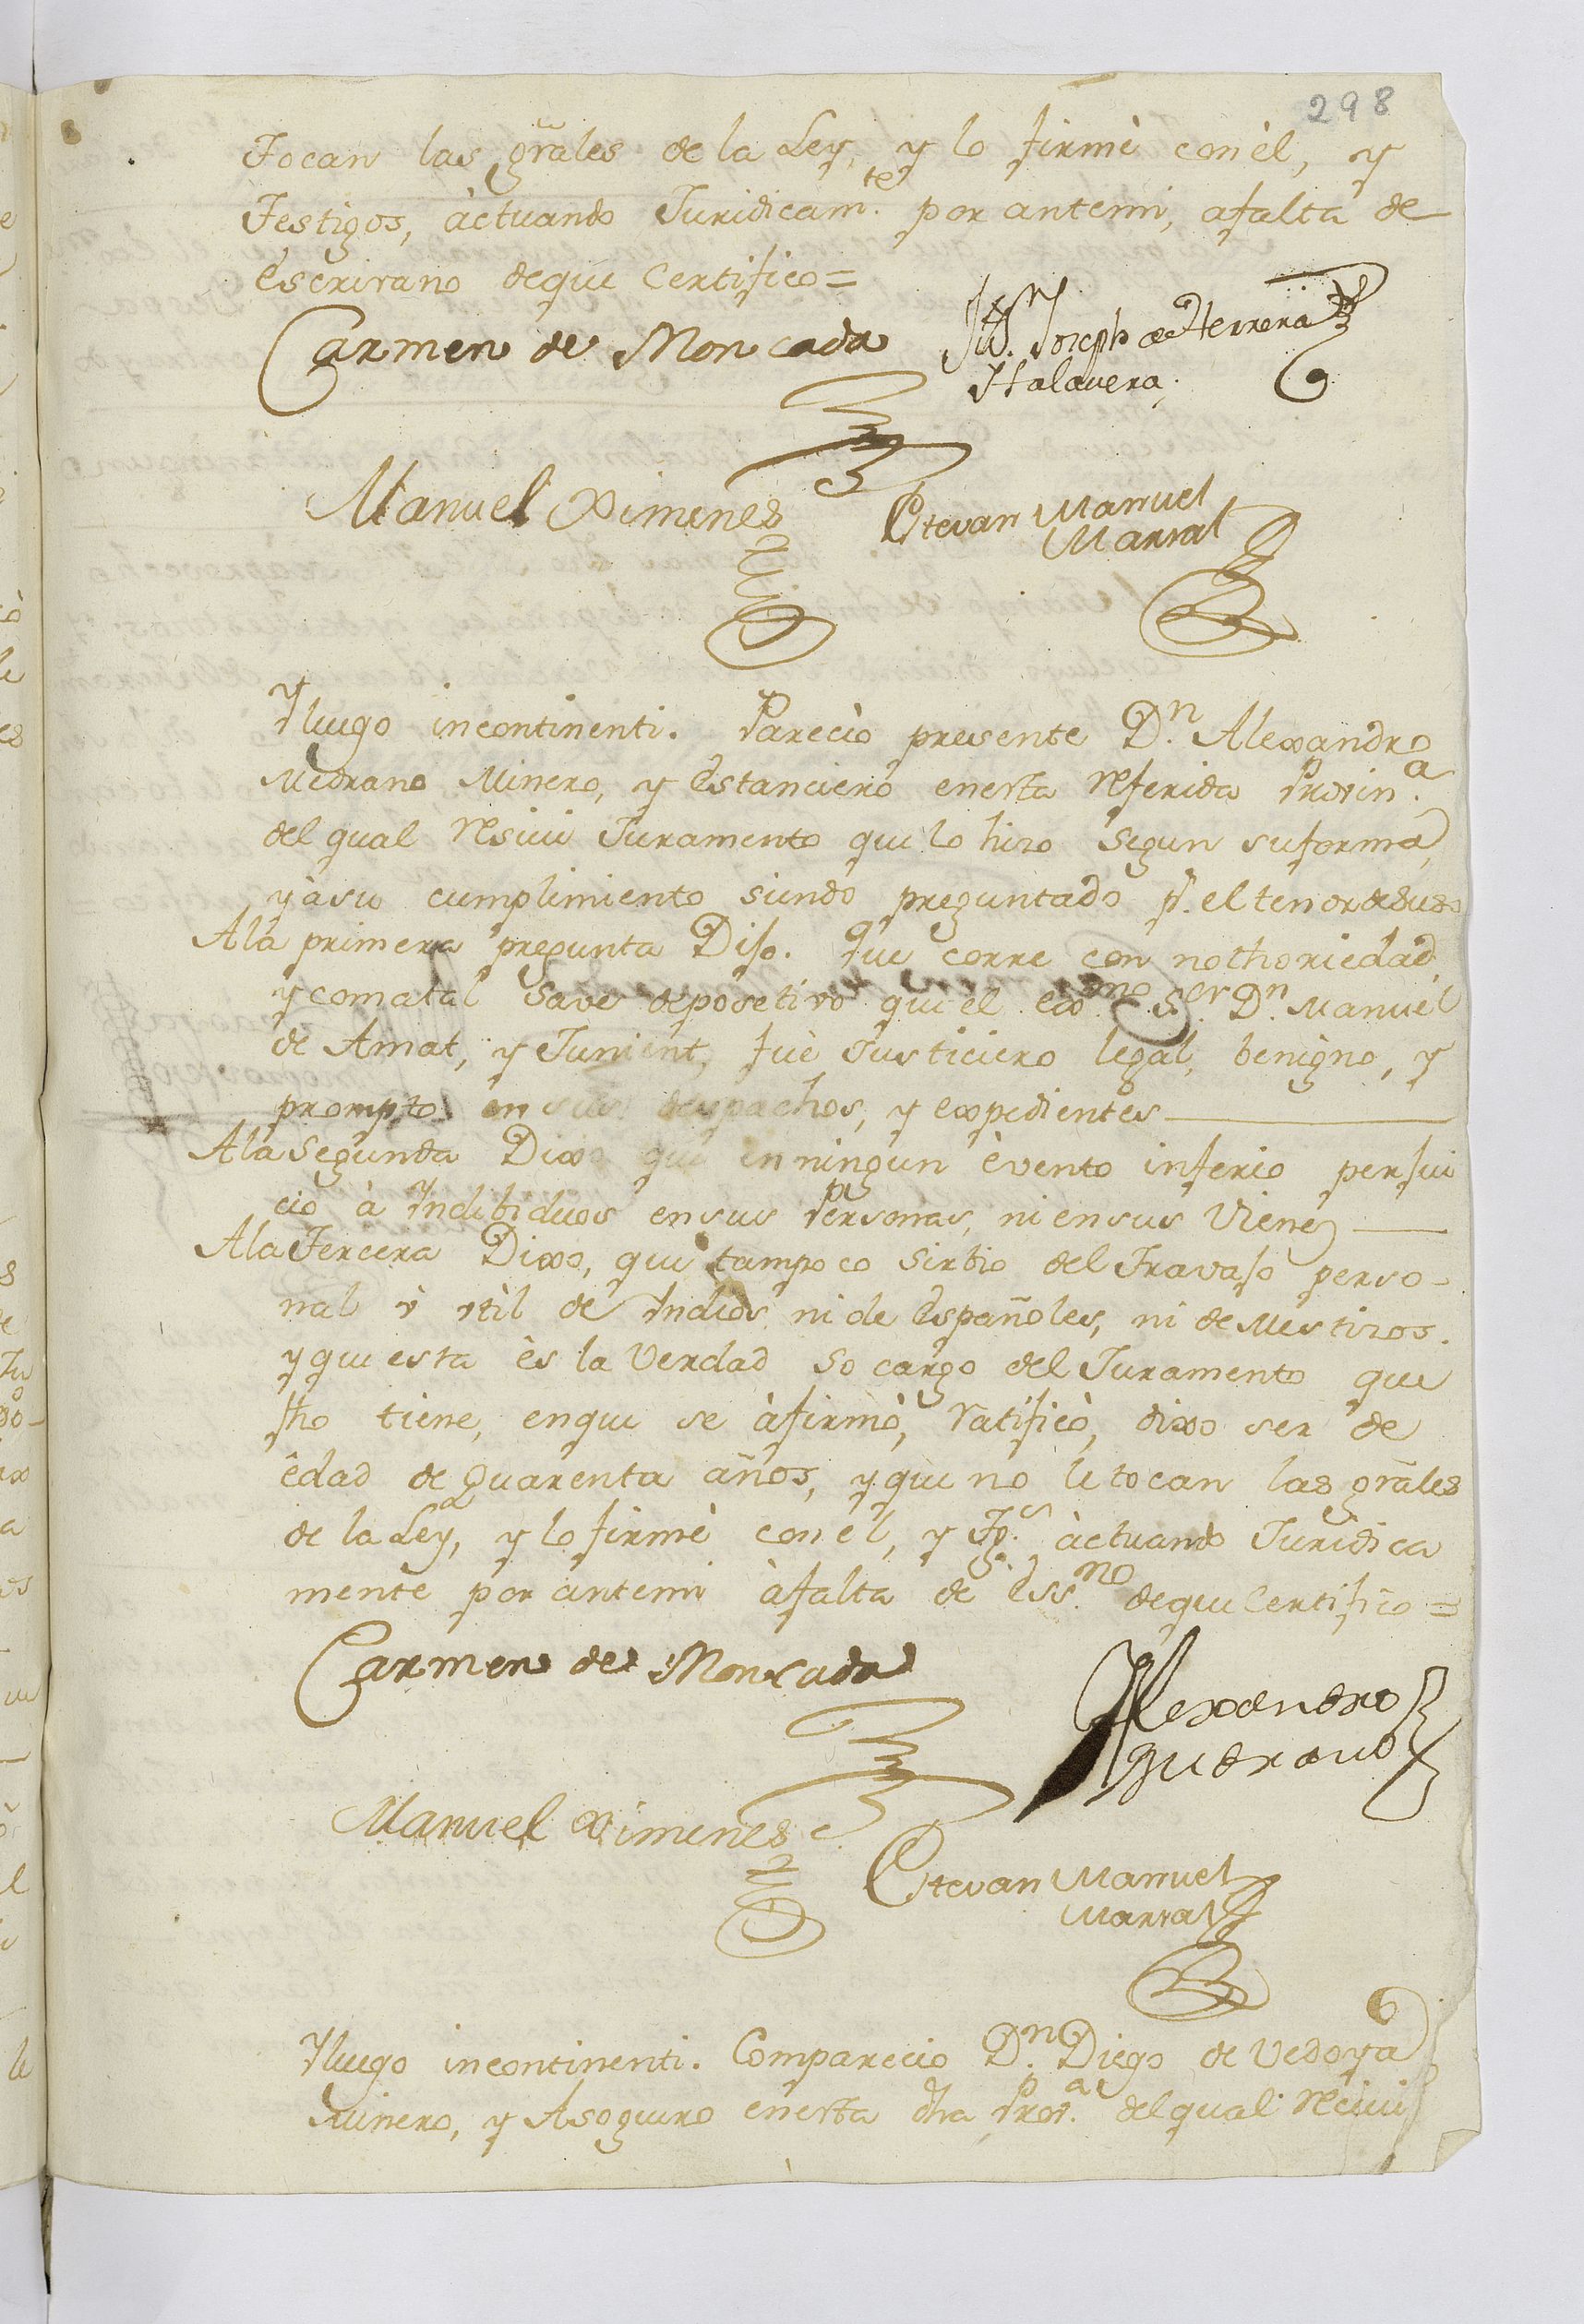 298
Tocan las grãles de la Ley, y lo firmè con èl, y
Testigos, àctuando Juridicam.te por antemi, afalta de
Escrivano deque Certifico=
Carmen de Moncada
Joseph de Herrera
Talavera.
Manuel Ximenes
Estevan Manuel
Marval
Yluego incontinenti. Pareciò presente D.n Alexandro
Medrano Minero, y Estanciero enesta referida Provin.a
del qual resivi Juramento que lo hizo segun suforma,
yàsu cumplimiento siendo preguntado p.r eltenor desuso
Ala primera pregunta Dijo. Que corre con nothoriedad,
ycomatal save depocetivo que èl exmo S.or D.n Manuel
de Amat, y Junient, fuè Justiciero legal, benigno, y
prompto en sus despachos, y expedientes
Ala Segunda Dixo que enningun èvento inferio perjui
cio à Indibiduos ensus Personas, niensus Vienes
Ala Tercera Dixo, que tampoco sirbio del Travajo perso-
nal ò vtìl de Yndios ni de Españoles, ni de Mestizos.
yque esta ès la Verdad so cargo del Juramento que
fho tiene, enque se àfirmò, ratificò, dixo ser de
edad de Quarenta años, yque no letocan las grãles
de la Ley, y lo firmè con èl, y Tg.s àctuando Juridica
mente por antemi àfalta de Ess.no deque Certifico=
Carmen de Moncada
Alexandro
Medrano
Manuel Ximenes
Estevan Manuel
Marval
Yluego incontinenti. Comparecio D.n Diego de Vedoya
Minero, y Asoguero enesta dha Prov.a del qual recivi